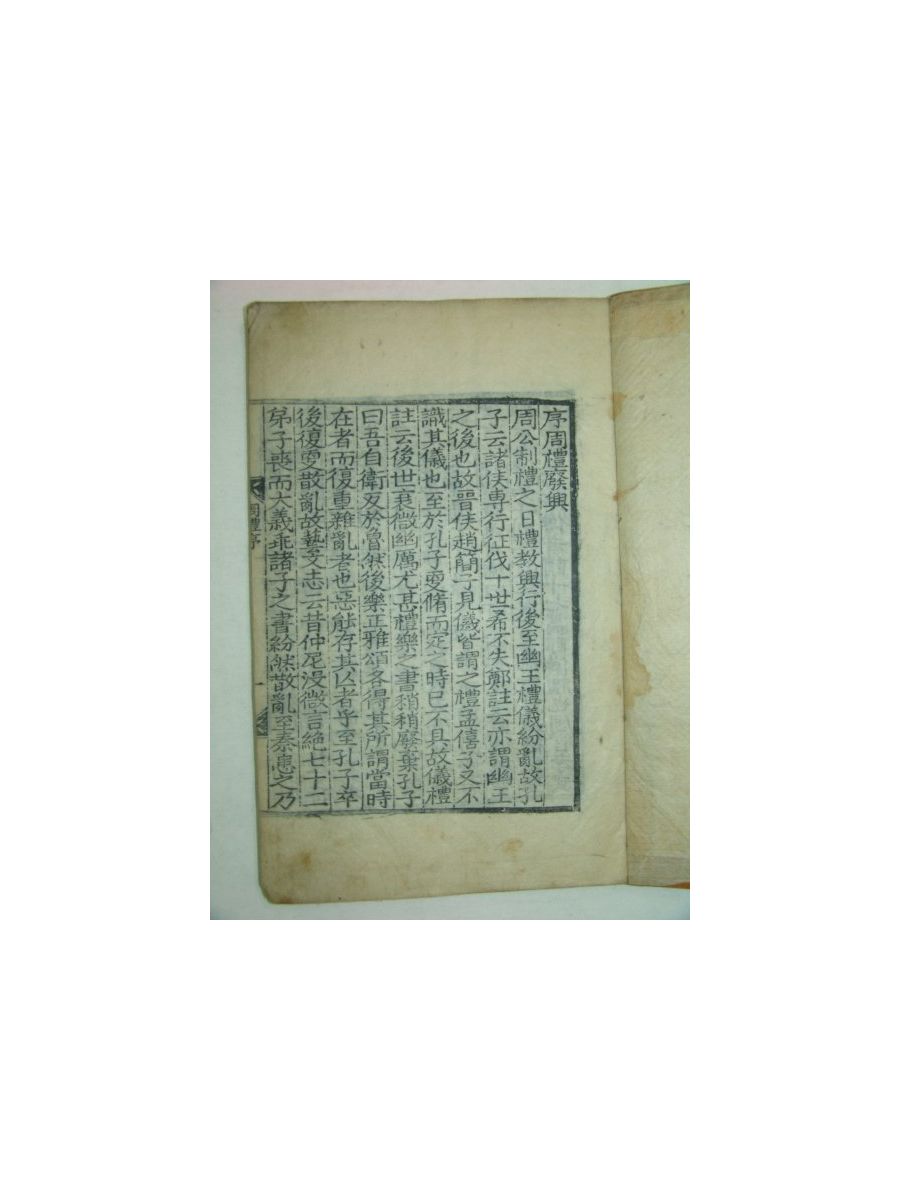 序周禮廢興
周公制禮之日禮教興行後至幽王禮儀紛亂故孔
子云諸侯專行征伐十世希不失鄭註云亦謂幽王
之後也故晉侯趙簡子見儀皆謂之禮孟僖子又不
識其儀也至於孔子更脩而定之時已不具故儀禮
註云後世衰微幽厲尤甚禮樂之書稍稍廢棄孔子
曰吾自衛反於魯然後樂正雅頌各得其所謂當時
在者而復重雜亂者也惡能存其亡者乎至孔子卒
後復更散亂故藝文志云昔仲尼没微言絕七十二
弟子喪而大義乖諸子之書紛然散亂至秦患之乃
周禮序
一